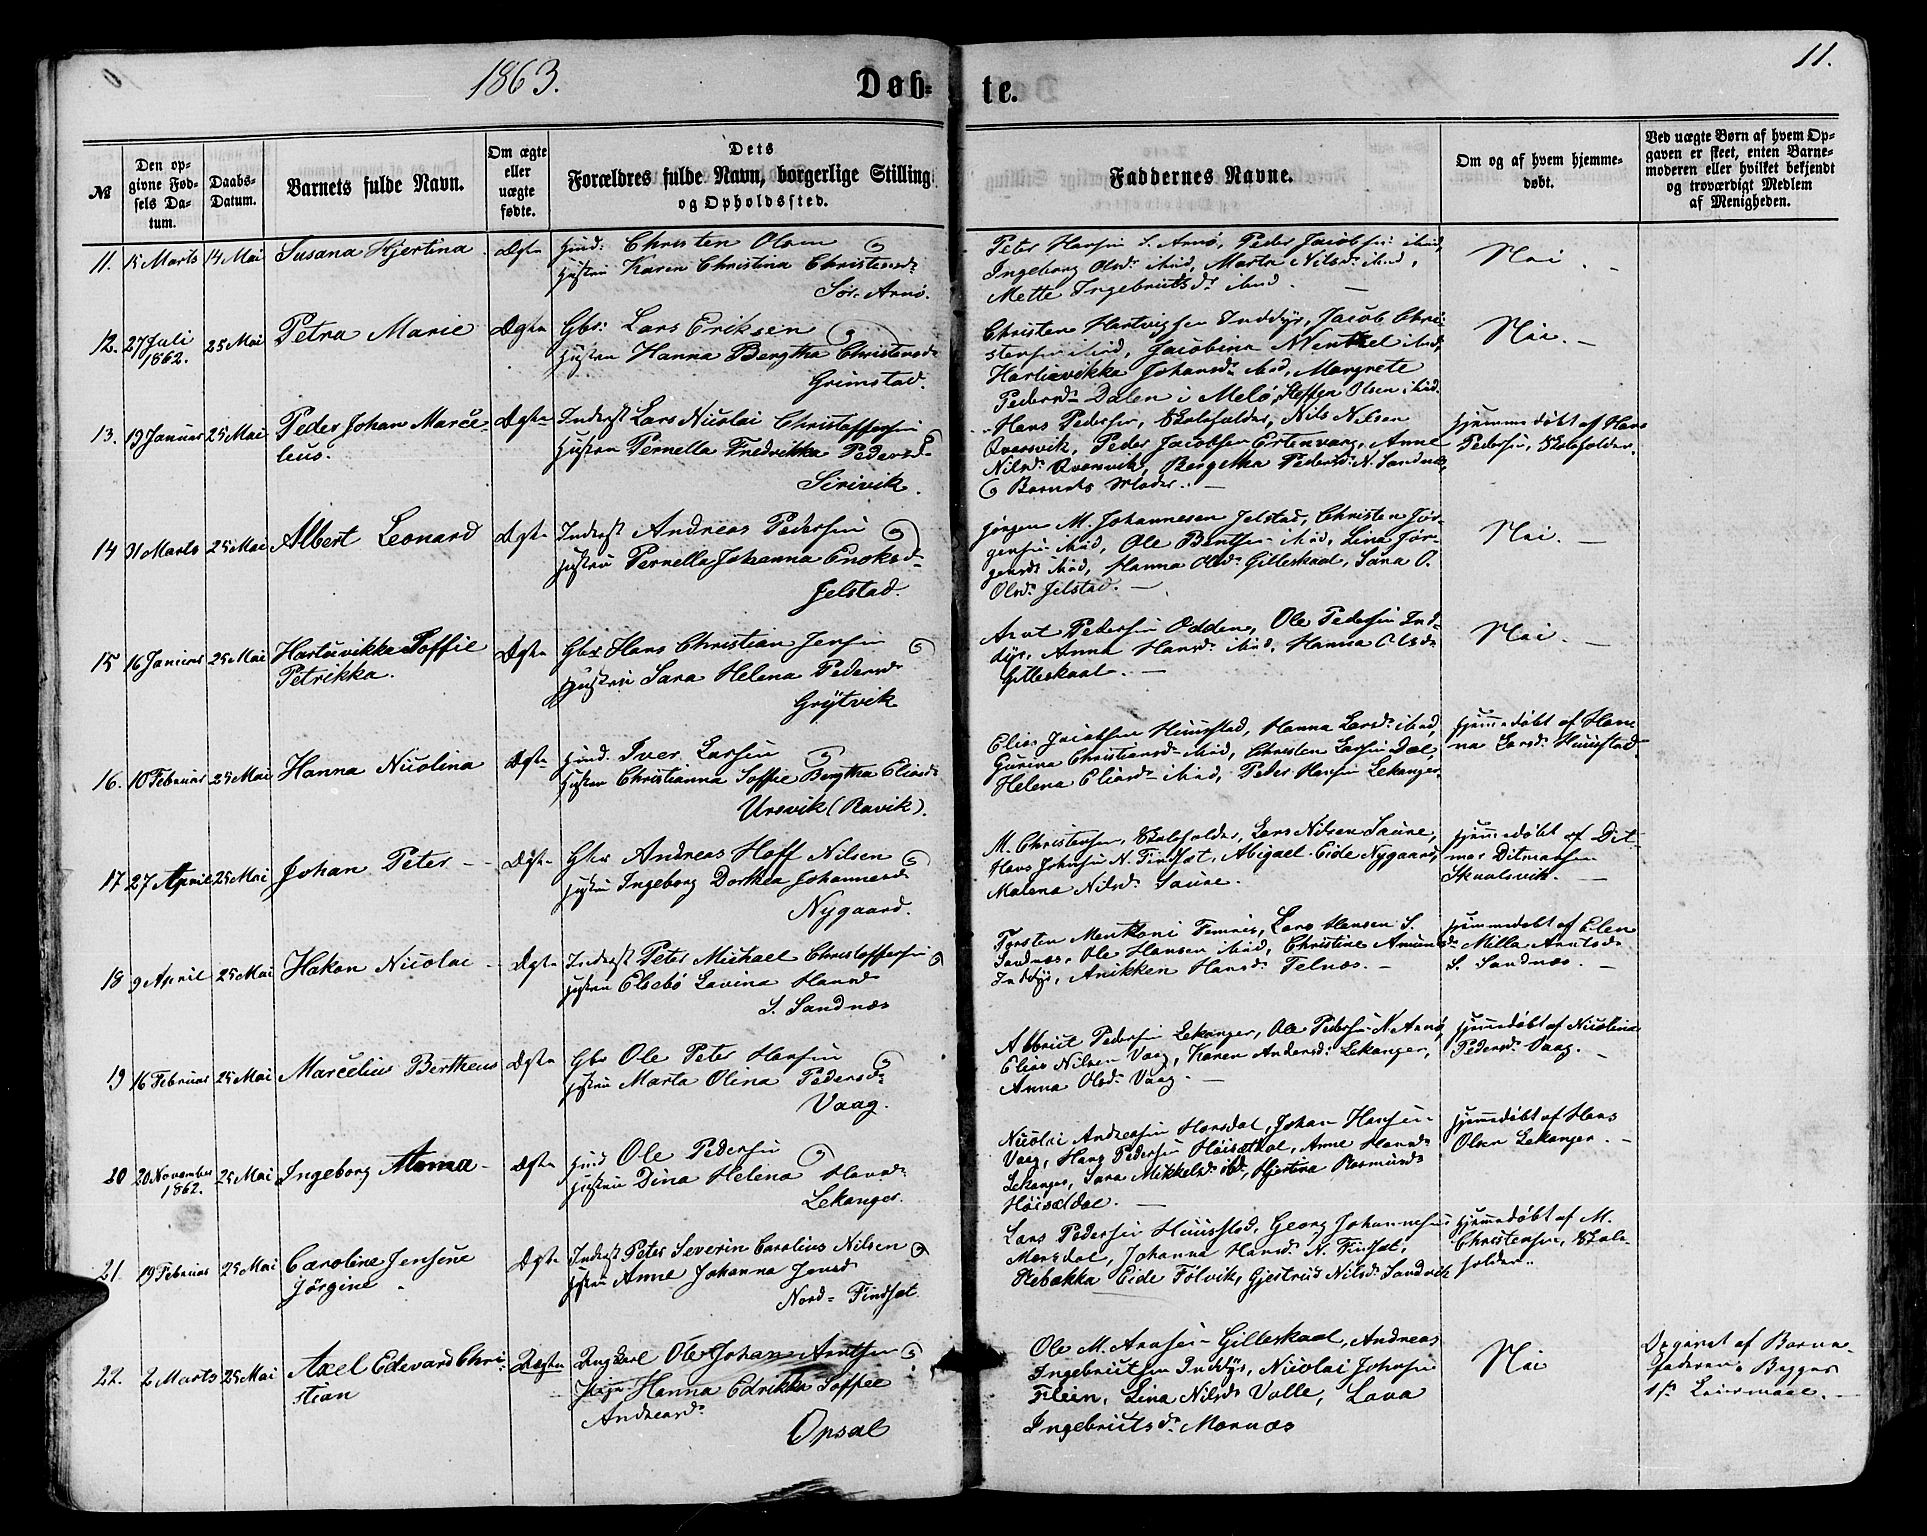 1863.
Døb-
te.
11.
№
Den op-
givne Fød-
sels Da-
tum.
Daabs-
Datum.
Barnets fulde Navn.
Om ægte
eller
uægte
fødte.
Dets
Forældres fulde Navn, borgerlige Stilling
og Opholdssted.
Faddernes Navne.
Om og af hvem hjemme-
døbt.
Ved uægte Børn af hvem Op-
gaven er skeet, enten Barne-
moderen eller hvilket bekjendt
og troværdigt Medlem
af Menigheden.
11. 15 Marts 14 Mai Susana Hjertina Ægte
Christen Olsen
Hustru Karen Christina Christensd.
Sør-Arnø.
Peter Hansen S. Arnø, Peder Jacobsen ibid,
Ingeborg Olsd. ibid, Marta Nilsd. ibid,
Mette Ingebrigtsd. ibid.
Nei.
12. 27 Juli
1862. 25 Mai Petra Marie Ægte
Gbr. Lars Eriksen
Hustru Hanna Bergtha Christensd.
Grimstad.
Christen Hartvigsen Inddyr, Jacob Chri-
stensen ibid, Jacobina ibid,
Hartvikka Johansd. ibid, Margrete
Pedersd. Dalen i Melø, Steffen Olsen ibid.
Nei.
13. 19 Januar 25 Mai Peder Johan Marce-
leus. Ægte
Inderst Lars Nicolai Christoffersen
Hustru Pernella Fredrikka Pedersd.
Sirivik.
Hans Pedersen, Skoleholder, Nils Nilsen
Qversvik, Peder Jacobsen Ertenvaag, Anne
Nilsd. Qversvik, Bergetha Pedersd. N. Sandnes,
og Barnets Moder.
hjemmedøbt af Hans
Pedersen, Skoleholder.
14 31 Marts 25 Mai Albert Leonard Ægte
Inderst Andreas Pedersen
Hustru Pernella Johanna Enoksd.
Jelstad.
Jørgen M. Johannesen Jelstad, Christen Jør-
gensen ibid, Ole Bentsen ibid, Lina Jør-
gensd. ibid, Hanna Olsd. Gilleskaal, Sara O.
Olsd. Jelstad.
Nei.
15 16 Januar 25 Mai Hartuvikke Soffie
Petrikka. Ægte
Gbr. Hans Christian Jensen
Hustru Sara Helena Pedersd.
Grytvik
Arnt Pedersen Odden, Ole Pedersen Ind-
dyr, Anna Hansd. ibid, Hanna Olsd.
Gilleskaal.
Nei.
16. 10 Februar 25 Mai Hanna Nicolina Ægte
Iver Larsen
Hustru Christianna Soffie Bergtha Eliasd.
Ursvik (Ravik).
Elias Jacobsen Hunstad, Hanna Larsd. ibid,
Gurina Christiansd. ibid, Christen Larsen Dal,
Helena Eliasd. ibid, Peder Hansen Lekanger.
hjemmedøbt af Han-
na Larsd. Hunstad
17 27 April 25 Mai Johan Peter Ægte
Gbr. Andreas Hoff Nilsen
Hustru Ingeborg Dorthea Johannesd.
Nygaard.
M. Christensen, Skoleholder, Lars Nilsen Saure,
Hans Johnsen N. Findset, Abigael Eide Nygaard,
Malena Nilsd. Saure.
hjemmedøbt af Dit-
mar Ditmarsen
Skaalsvik.
18 9 April 25 Mai Hakon Nicolai Ægte
Inderst Peter Michael Christoffersen
Hustru Elsebø Lavina Hansd.
S. Sandnæs
Torsten Femris, Lars Hansen S.
Sandnæs, Ole Hansen ibid, Christine Amundsd.
Inddyr, Anikken Hansd. Telnæs.
hjemmedøbt af Elen
Milla Arntsd.
S. Sandnæs.
19 16 Februar 25 Mai Marcelius Bertheus Ægte
Gbr. Ole Peter Hansen
Hustru Marta Olina Pedersd.
Vaag.
Albrigt Pedersen Lekanger, Ole Pedersen N. Arnø,
Elias Nilsen Vaag, Karen Andersd. Lekanger,
Anna Olsd. Vaag.
hjemmedøbt af Nicolina
Pedersd. Vaag.
20 20 November
1862. 25 Mai Ingeborg Anna Ægte
Ole Pedersen
Hustru Dina Helena Hansd.
Lekanger.
Nicolai Andreasen Horsdal, Johan Hansen
Vaag, Hans Pedersen Høisætdal, Anne Hansd.
Lekanger, Sara Mikkelsd. ibd, Hjertina Rasmusd.
Høisætdal.
hjemmedøbt af Hans
Olsen Lekanger.
21. 19 Februar 25 Mai Caroline Jensine
Jørgine Ægte
Inderst Peter Severin Carolius Nilsen
Hustru Anne Johanna Jensd.
Nord-Findset.
Lars Pedersen Hunstad, Georg Johannesen
Morsdal, Johanna Hansd. N. Findset,
Rebakka Eide Følvik, Gjertrud Nilsd. Sandvik
hjemmedøbt af M.
Christensen, Skole-
holder.
22. 2 Marts 25 Mai Axel Edevard Chri-
stian Uægte
Ungkarl Ole Johan Arntsen
Pige Hanna Edrikka Soffie
Andreasd.
Opsal
Ole M. Arntsen Gilleskaal, Andreas
Ingebrigtsen Inddyr, Nicolai Johnsen
Flein, Lina Nilsd. Valle, Lava
Ingebrigtsd. Mornæs
Nei
Opgivet af Barne-
faderen. Begges
1ste Leiermaal.